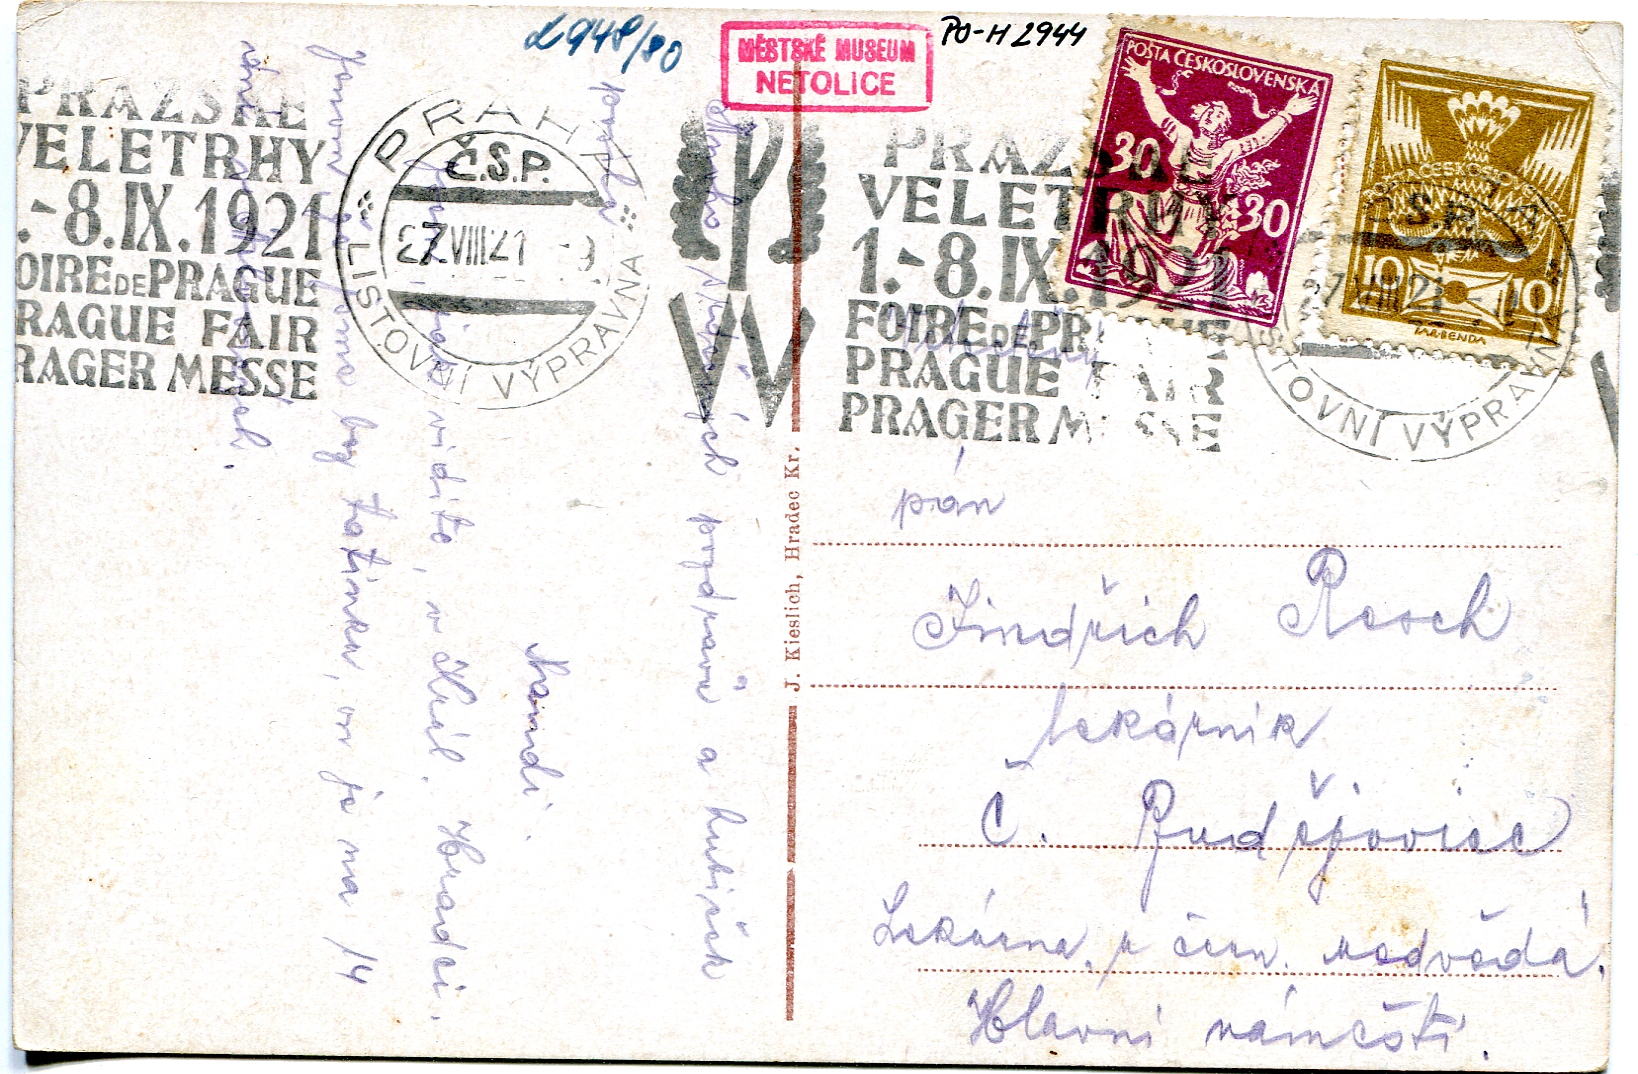 L948/80
MĚSTSKÉ MUSEUM
NETOLICE
PO-H 2944
PRAŽSKÉ
VELETRHY
.-8.IX.1921
FOIRE DE PRAGUE
PRAGUE FAIR
PRAGER MESSE
PRAHA
Č.S.P.
27.VIII.21 -9
LISTOVNÍ VÝPRAVNA
PRAŽSKÉ
VELETRHY
1.-8.IX.1921
FOIRE DE PRAGUE
PRAGUE FAIR
PRAGER MESSE
POŠTA ČESKOSLOVENSKÁ
30 30
POŠTA ČESKOSLOVENSKÁ
10 10
Č.S.P.
27.VIII.21
LISTOVNÍ VÝPRAVNA
J. Kieslich, Hradec Kr.
Mnoho srdečných pozdravů a hubiček
posílá
Nandi.
jak vidíte, v Král. Hradci.
by tatínka, on je na 14
dní
pán
Jindřich Resch
lekárník
Č. Budějovice
Lekárna u čern. medvěda.
Hlavní náměstí.